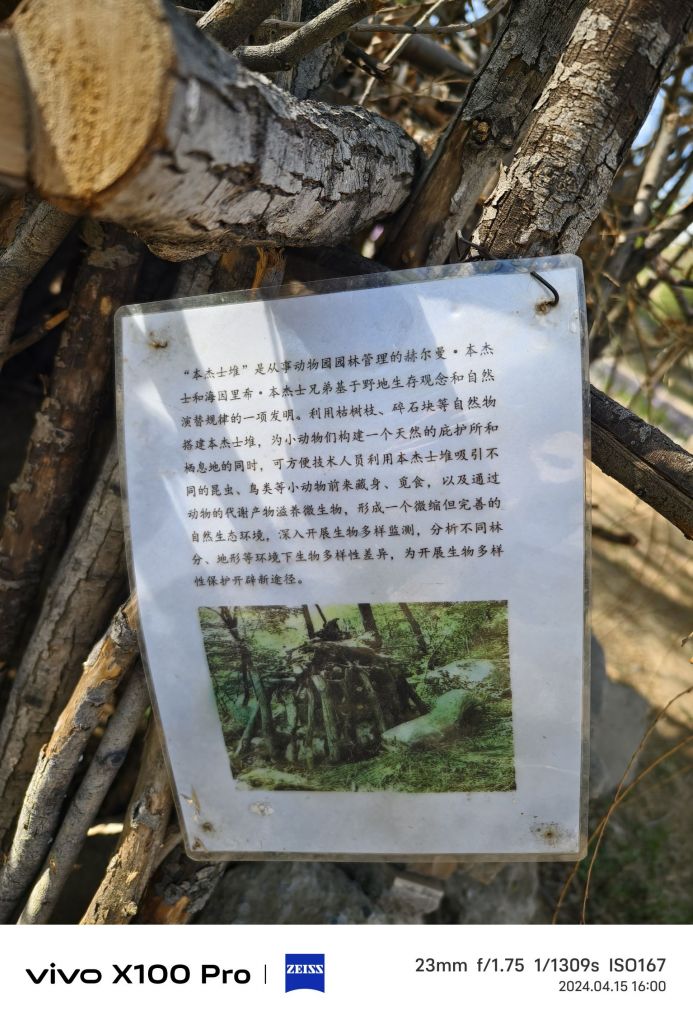 “本杰士堆”是从事动物园园林管理的赫尔曼·本杰
士和海因里希·本杰士兄弟基于野地生存观念和自然
演替规律的一项发明。利用枯树枝、碎石块等自然物
搭建本杰士堆，为小动物们构建一个天然的庇护所和
栖息地的同时，可方便技术人员利用本杰士堆吸引不
同的昆虫、鸟类等小动物前来藏身、觅食，以及通过
动物的代谢产物滋养微生物，形成一个微缩但完善的
自然生态环境，深入开展生物多样监测，分析不同林
分、地形等环境下生物多样性差异，为开展生物多样
性保护开辟新途径。
vivo X100 Pro
ZEISS
23mm f/1.75 1/1309s ISO167
2024.04.15 16:00